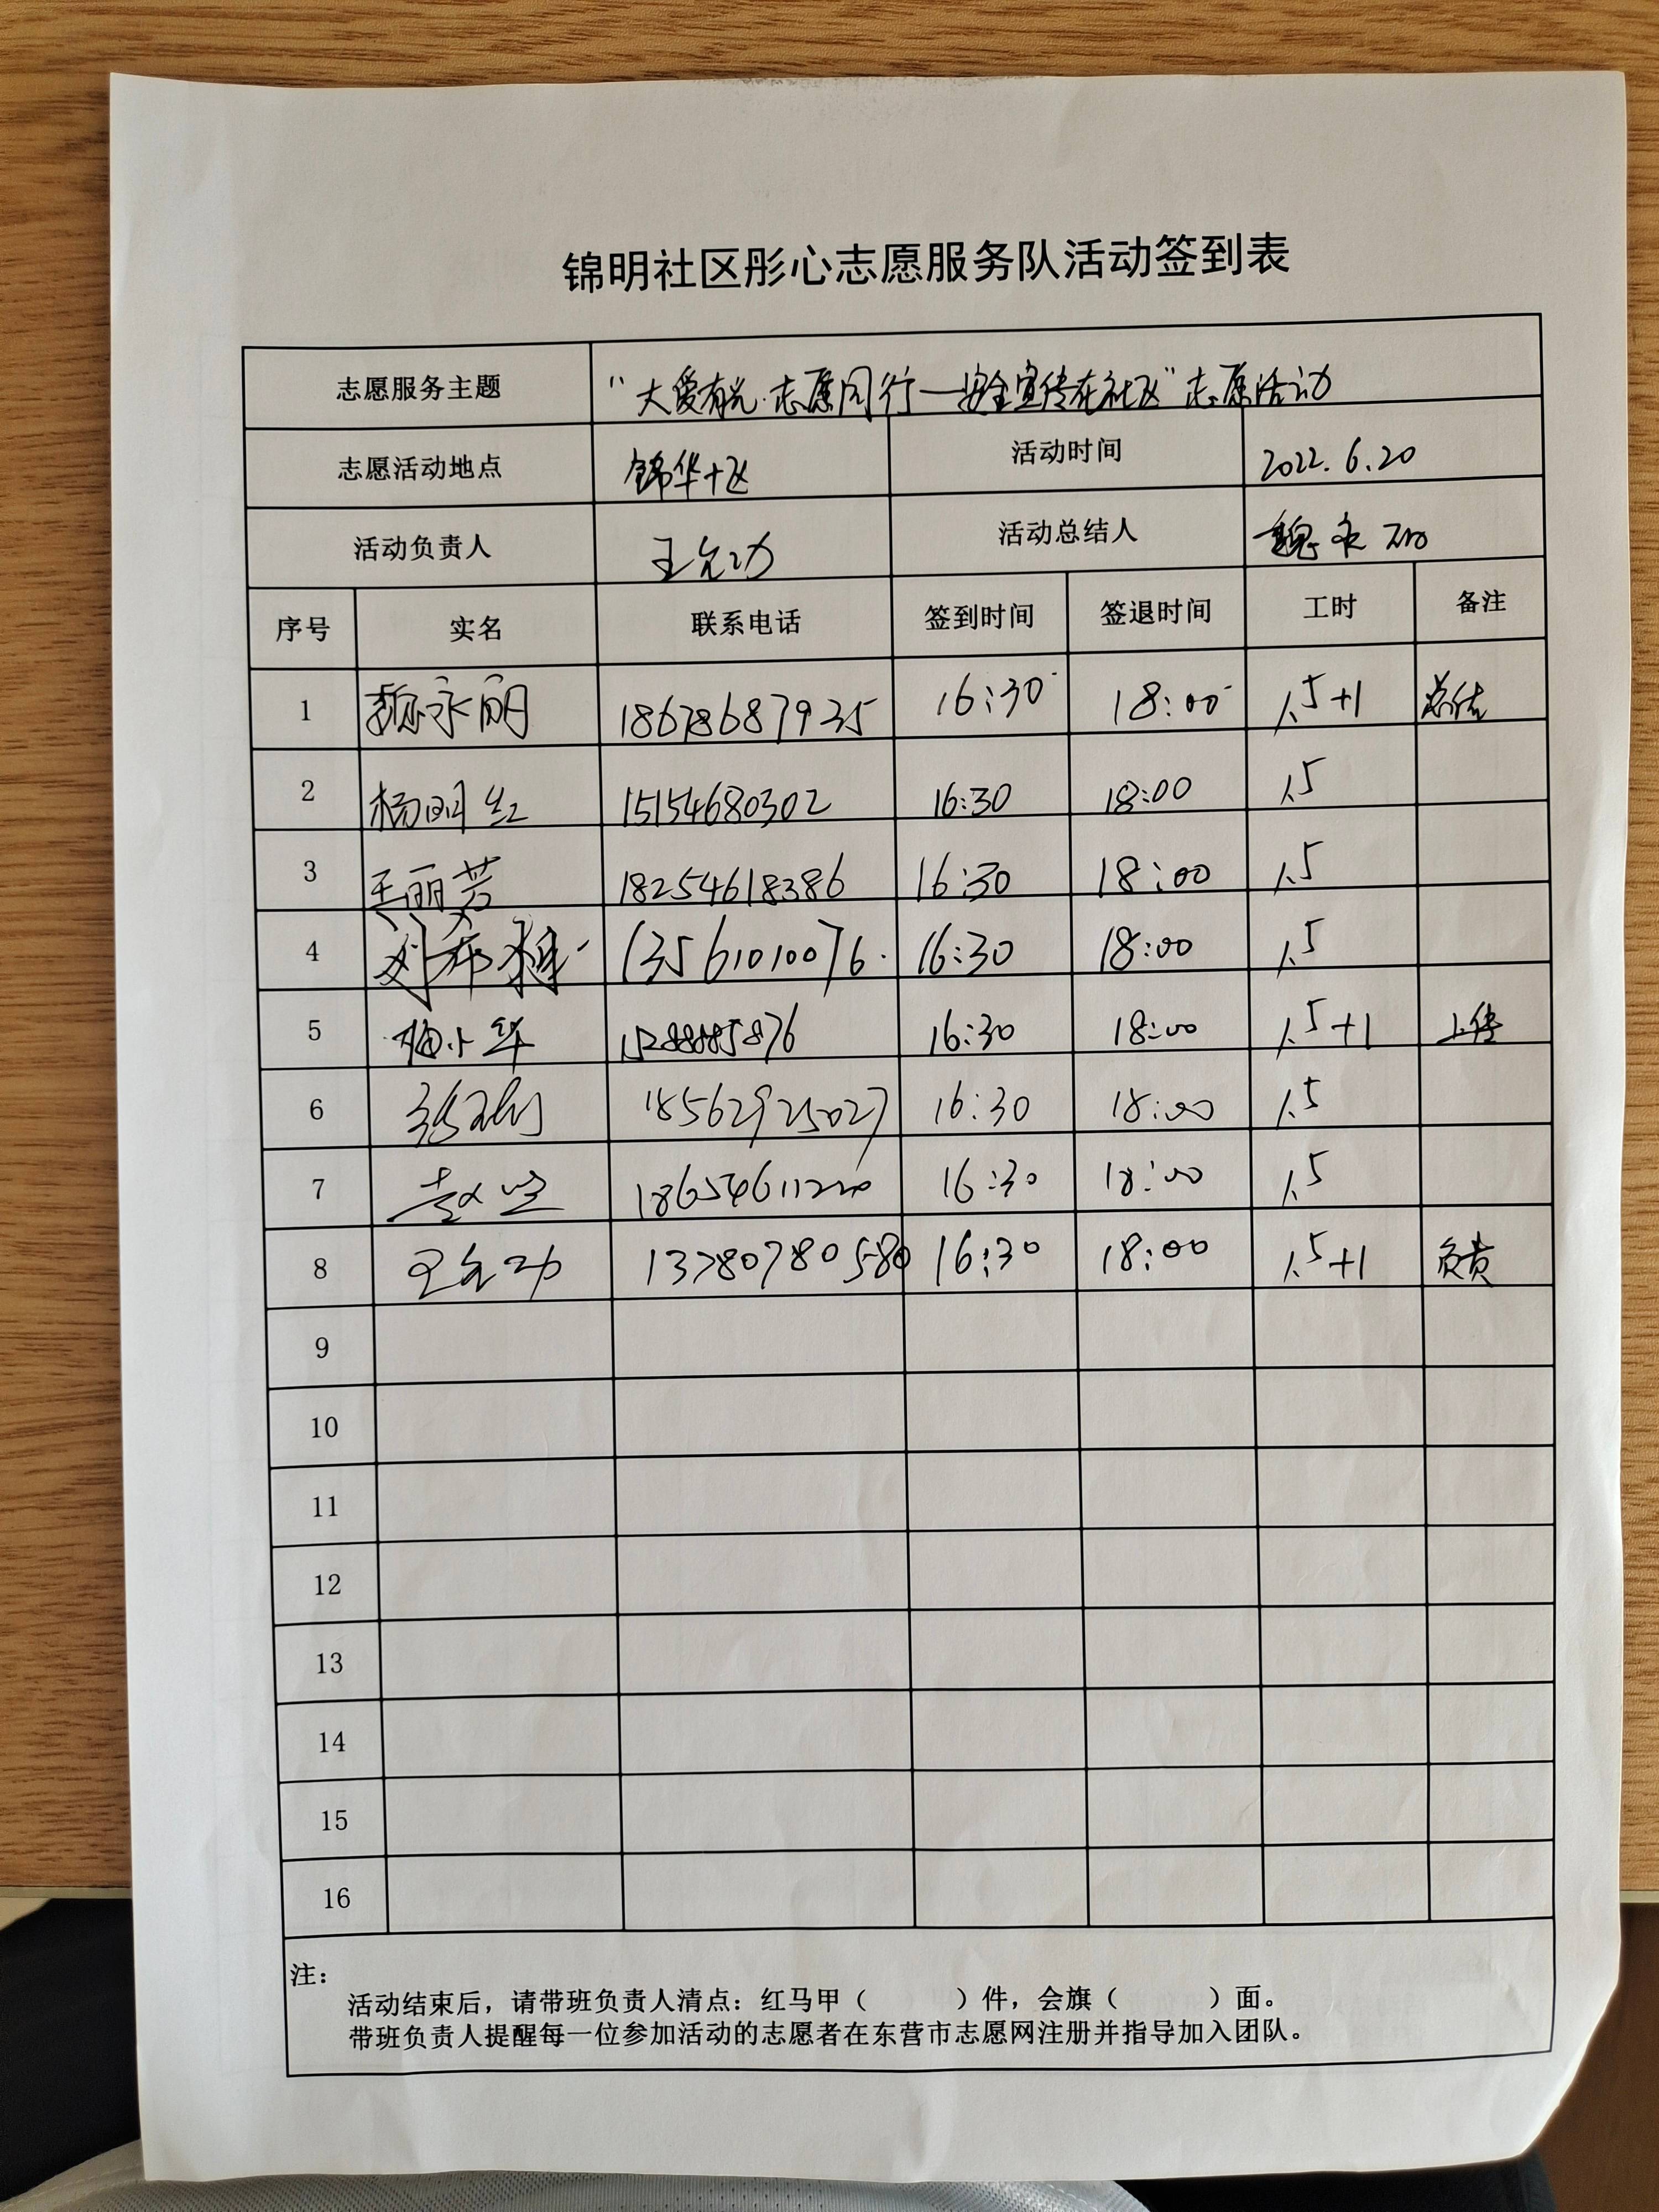 锦明社区彤心志愿服务队活动签到表
志愿服务主题 "大爱有光·志愿同行—安全宣传在社区"志愿活动
志愿活动地点 锦华十区 活动时间 2022.6.20
活动负责人 王允功 活动总结人 魏永丽
序号 实名 联系电话 签到时间 签退时间 工时 备注
1 魏永丽 18678687935 16:30 18:00 1.5+1 总结
2 杨丽红 15154680302 16:30 18:00 1.5
3 王丽芳 18254618386 16:30 18:00 1.5
4 刘希 13561010076. 16:30 18:00 1.5
5 小华 16:30 18:00 1.5+1 上传
6 18562925027 16:30 18:00 1.5
7 赵 18654611220 16:30 18:00 1.5
8 王允功 13780780580 16:30 18:00 1.5+1 负责
9
10
11
12
13
14
15
16
注：
活动结束后，请带班负责人清点：红马甲（ ）件，会旗（ ）面。
带班负责人提醒每一位参加活动的志愿者在东营市志愿网注册并指导加入团队。